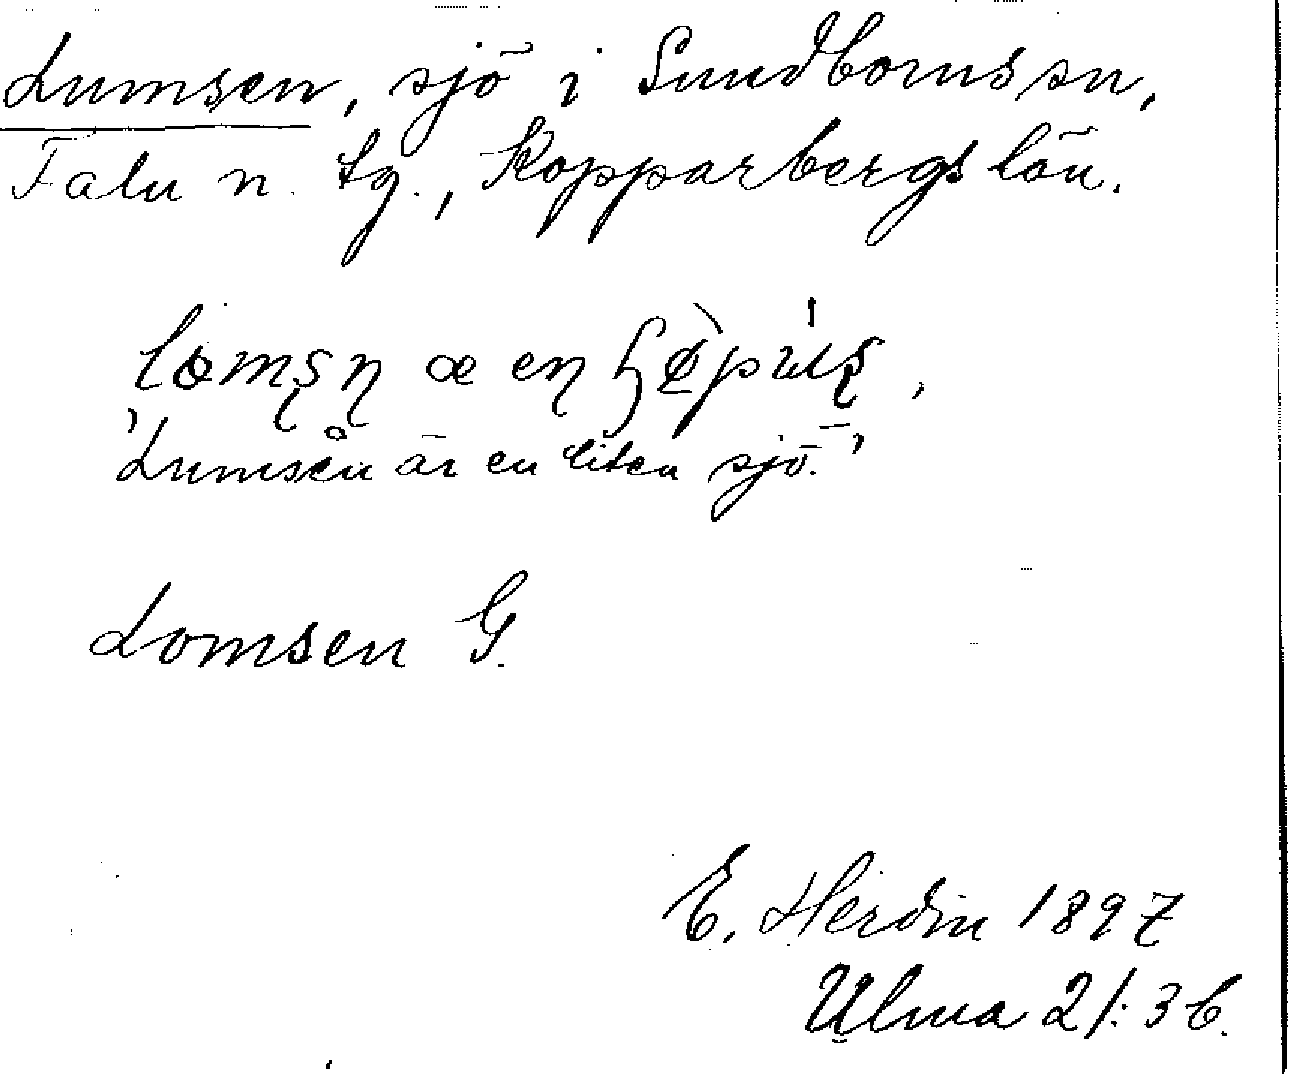 Lumsen, sjö i Sundborns sn,
Falu n. tg., Kopparbergs län.
æ en
'Lumsen är en liten sjö.'
Lomsen G.
E. Herdin 1897
Ulma 21:36.